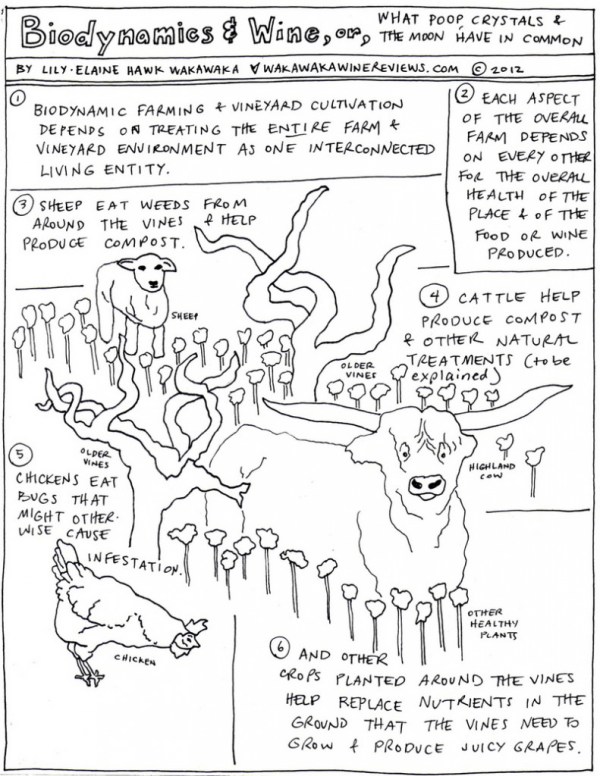 Biodynamics & Wine, or, WHAT POOP, CRYSTALS &
THE MOON HAVE IN COMMON
BY LILY-ELAINE HAWK WAKAWAKA WAKAWAKAWINEREVIEWS.COM © 2012
① BIODYNAMIC FARMING & VINEYARD CULTIVATION
DEPENDS ON TREATING THE ENTIRE FARM &
VINEYARD ENVIRONMENT AS ONE INTERCONNECTED
LIVING ENTITY.
② EACH ASPECT
OF THE OVERALL
FARM DEPENDS
ON EVERY OTHER
FOR THE OVERALL
HEALTH OF THE
PLACE & OF THE
FOOD OR WINE
PRODUCED.
③ SHEEP EAT WEEDS FROM
AROUND THE VINES & HELP
PRODUCE COMPOST.
SHEEP
④ CATTLE HELP
PRODUCE COMPOST
& OTHER NATURAL
TREATMENTS (to be
explained)
OLDER
VINES
HIGHLAND
COW
OLDER
VINES
⑤
CHICKENS EAT
BUGS THAT
MIGHT OTHER-
WISE CAUSE
INFESTATION.
CHICKEN
OTHER
HEALTHY
PLANTS
⑥ AND OTHER
CROPS PLANTED AROUND THE VINES
HELP REPLACE NUTRIENTS IN THE
GROUND THAT THE VINES NEED TO
GROW & PRODUCE JUICY GRAPES.